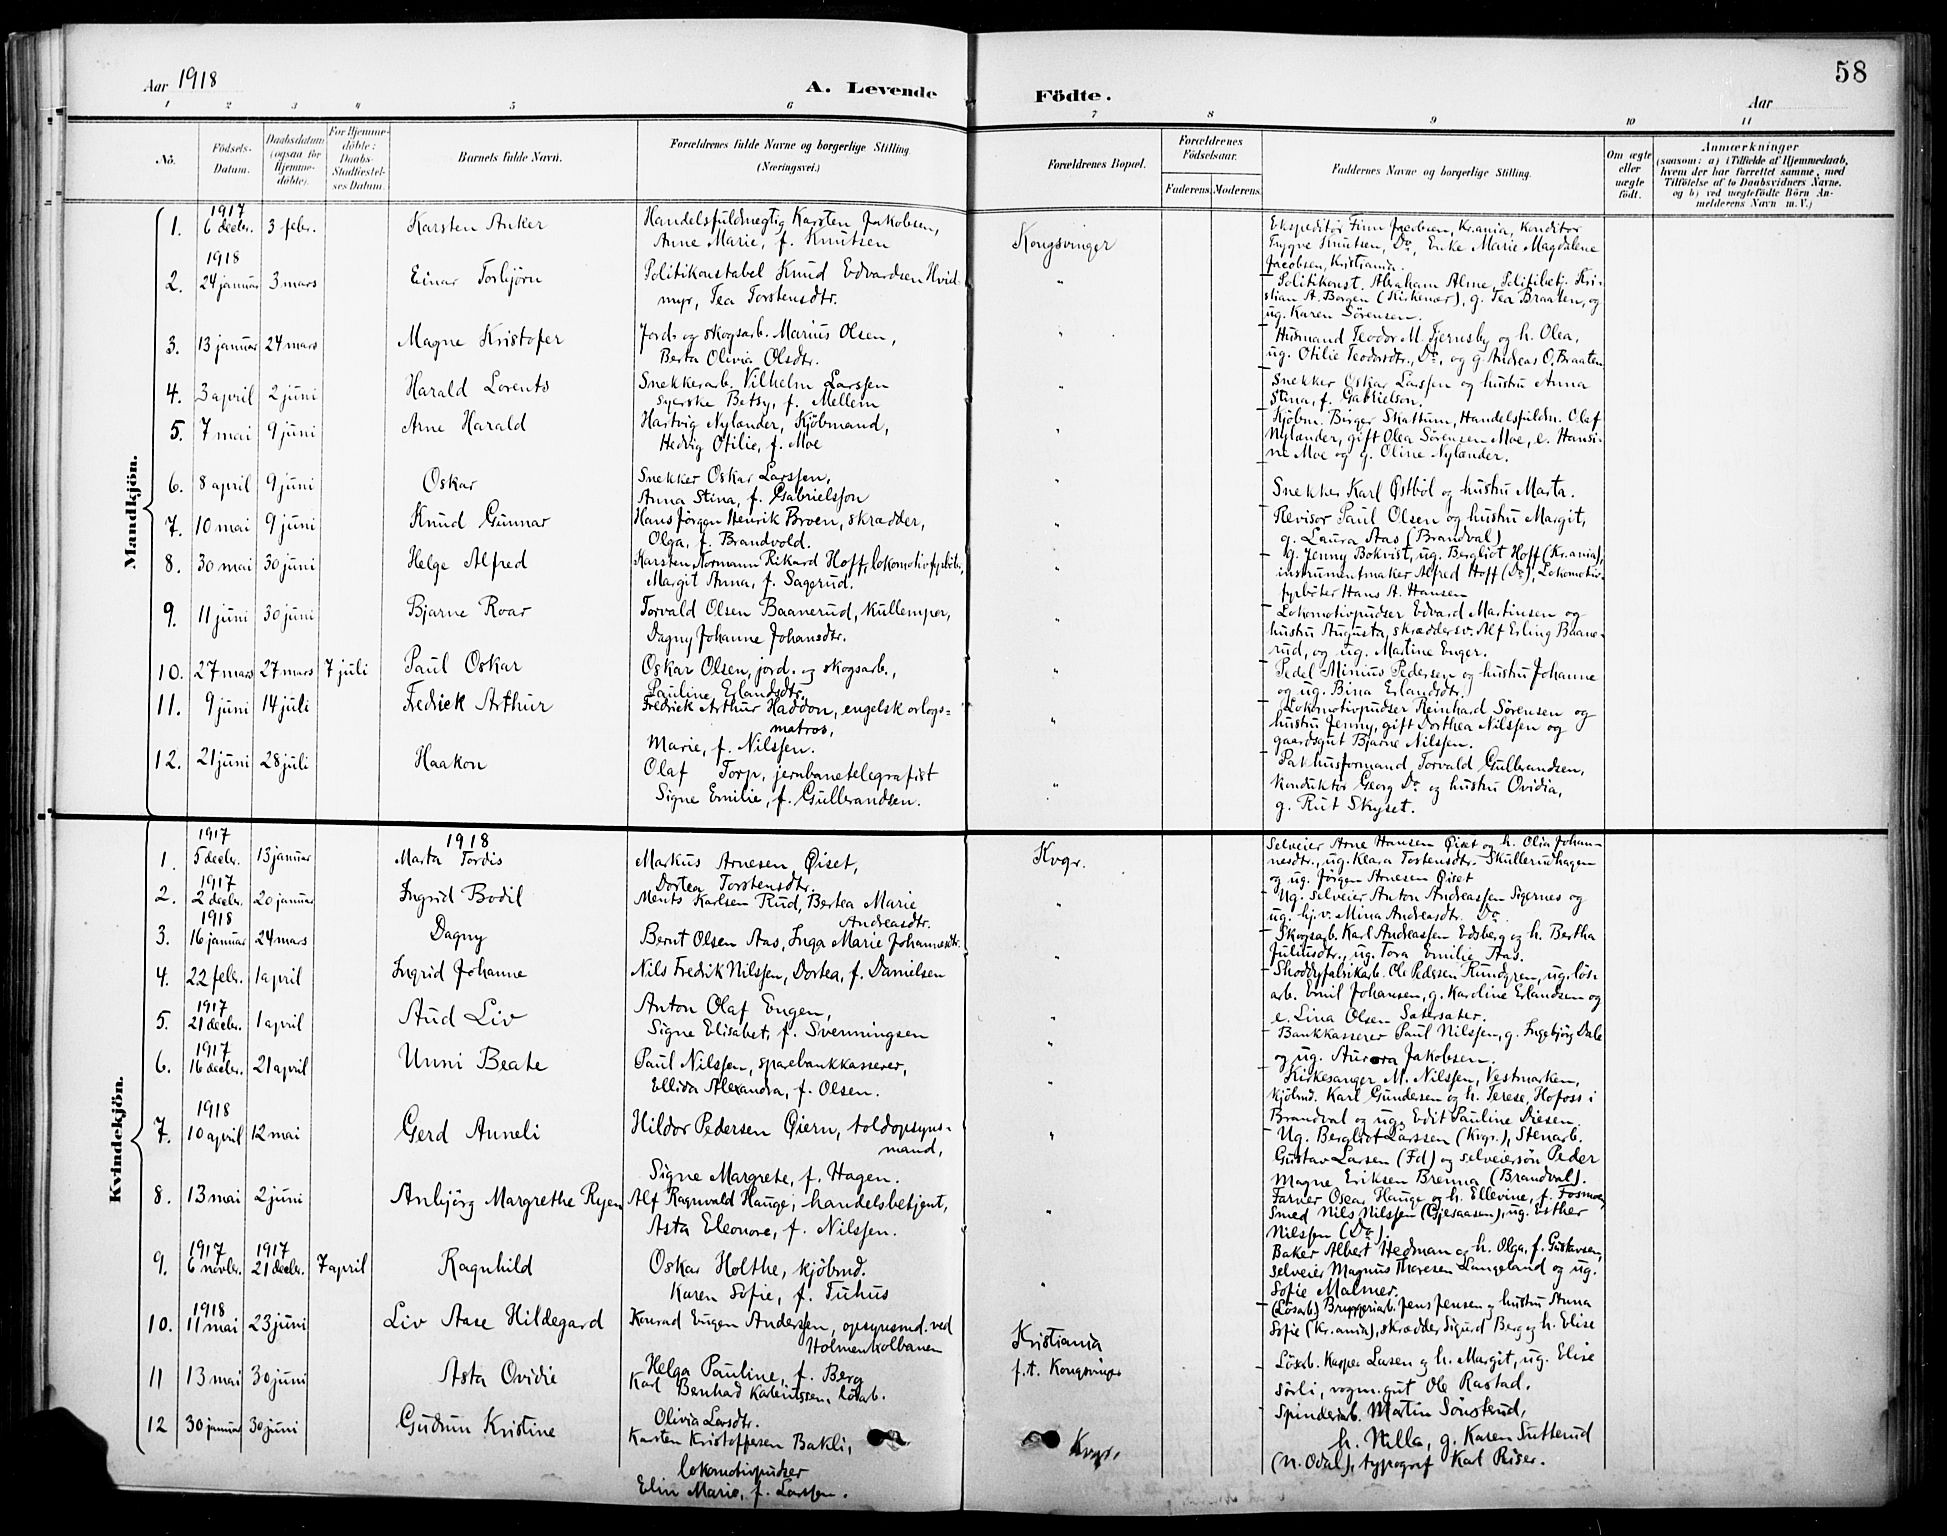 Aar 1918
A. Levende Födte.
Aar
58
1 2 3 4 5 6 7 8 9 10 11
No.
Födsels-Datum.
Daabsdatum (ogsaa for Hjemme-döbte).
For Hjemme-döbte: Daabs-Stadfæstel-ses Datum.
Barnets fulde Navn.
Forældrenes fulde Navne og borgerlige Stilling (Næringsvei.)
Forældrenes Bopæl.
Forældrenes Födselsaar.
Faderens. Moderens.
Faddernes Navne og borgerlige Stilling.
Om ægte eller uægte födt.
Anmærkninger
(saasom: a) i Tilfælde af Hjemmedaab, hvem der har forrettet samme, med Tilföielse af to Daabsvidners Navne. og b) ved uægtefödte Börn An-melderens Navn m. V.)
Mandkjön.
1. 1917 6 decbr. 3 febr. Karsten Anker
Handelsfuldmegtig Karsten Jakobsen,
Anne Marie, f. Knutsen
Kongsvinger
Ekspeditör Finn Jacobsen, Kr.ania, Konditor
Trygve Knutsen, Do, Enke Marie Magdalene
Jacobsen, Kristiania.
2. 1918 24 januar 3 mars Einar Torbjörn
Politikonstabel Knud Edvardsen Hvid-
myr, Tea Torstensdtr.
"
Politikonst. Abraham Alme, Politibetj. Kri-
stian A. Borgen (Kirkenær), g. Tea Braaten, og
ug. Karen Sörensen.
3. 13 januar 24 mars Magne Kristofer
Jord- og skogsarb. Marius Olsen,
Berta Olivia Olsdtr.
"
Husmand Teodor M. Tjernsby og h. Olea,
ug. Otilie Teodorsdtr., Do, og g. Andreas O. Braaten
4. 3 april 2 juni Harald Lorents
Snekkerarb. Vilhelm Larssen
syerske Betsy, f. Mellem
"
Snekker Oskar Larssen og hustru Anna
Stina, f. Gabrielson.
5. 7 mai 9 juni Arne Harald
Hartvig Nylænder, Kjöbmand,
Hedvig Otilie, f. Moe
"
Kjöbm. Birger Skattum, Handelsfuldm. Olaf
Nylænder, gift Olea Sörensen Moe, e. Hansi-
ne Moe og g. Oline Nylænder.
6. 8 april 9 juni Oskar
Snekker Oskar Larssen,
Anna Stina, f. Gabrielsson
"
Snekker Karl Østböl og hustru Marta.
7. 10 mai 9 juni Knud Gunnar
Hans Jörgen Henrik Broen, skrædder,
Olga, f. Brandvold.
"
Revisor Paul Olsen og hustru Margit,
g. Laura Aas (Brandval)
8. 30 mai 30 juni Helge Alfred
Karsten Normann Rikard Hoff, lokomotivfyrböter,
Margit Anna, f. Sagerud.
"
g. Jenny Bokvist, ug. Bergliot Hoff (Kr.ania),
instrumentmaker Alfred Hoff (Do), Lokomotiv-
fyrböter Hans A. Hansen
9. 11 juni 30 juni Bjarne Roar
Torvald Olsen Baanerud, kullemper,
Dagny Johanne Johansdtr.
"
Lokomotivpudser Edvard Martinsen og
hustru Augusta, skræddersv. Alf Erling Baane-
rud, og ug. Martine Enger.
10. 27 mars 27 mars 7 juli Paul Oskar
Oskar Olsen, jord- og skogsarb.,
Pauline Erlandsdtr.
"
Pedel Minius Pedersen og hustru Johanne
og ug. Bina Erlandsdtr.
11. 9 juni 14 juli Fedrick Arthur
Fredrick Arthur Haddon, engelsk orlogs-
matros,
Marie, f. Nilssen.
"
Lokomotivpudser Reinhard Sörensen og
hustru Jenny, gift Dorthea Nilssen og
gaardsgut Bjarne Nilssen.
12. 21 juni 28 juli Haakon
Olaf Torp, jernbanetelegrafist
Signe Emilie, f. Gullbrandsen.
"
Pakhusformand Torvald Gullbrandsen,
Konduktör Georg Do og hustru Ovidia,
g. Rut Skyset.
Kvindekjön.
1918
1. 1917 5 decbr. 13 januar Marta Tordis
Markus Arnesen Øiset,
Dortea Torstensdtr.
Kvgr.
Selveier Arne Hansen Øiset og h. Olia Johan-
nesdtr., ug. Klara Tostensdtr. Skullerudhagen
og ug. Jörgen Arnesen Øiset
2. 1917 2 decbr. 20 januar Ingrid Bodil
Ments Karlsen Rud, Bertea Marie
Andreasdtr.
"
Ug. selveier Anton Andreassen Sigernes og
ug. hj.v. Mina Andreasdtr. Do
3. 1918 16 januar 24 mars Dagny
Bernt Olsen Aas, Inga Marie Johannesdtr.
"
Skogsarb. Karl Andreassen Edsberg og h. Bertha
Juliusdtr., ug. Tora Emilie Aas.
4. 22 febr. 1 april Ingrid Johanne
Nils Fredrik Nilssen, Dortea, f. Danielsen
Shoddyfabrikarb. Ole Pedersen Rundgren, ug. lös-
arb. Emil Johansen, g. Karoline Erlandsen og
e. Lina Olsen Sætersæter.
5. 1917 21 decbr. 1 april Aud Liv
Anton Olaf Engen,
Signe Elisabet, f. Svenningsen
"
Bankkasserer Paul Nilssen, g. Ingebjörg Dale
og ug. Aurora Jakobsen.
6. 1917 16 decbr. 21 april Unni Beate
Paul Nilssen, sparebankkasserer,
Ellida Alexandra, f. Olsen.
"
Kirkesanger M. Nilssen, Vestmarken,
kjöbmd. Karl Gundersen og h. Terese, Hofoss i
Brandval og ug. Edit Pauline Diesen.
7. 1918 10 april 12 mai Gerd Anneli
Hildor Pedersen Øiern, toldopsyns-
mand,
Signe Margrete, f. Hagen.
"
Ug. Bergliot Larssen (Kvgr.), Stenarb.
Gustav Larsen (Fd) og selveiersön Peder
Magne Eriksen Brenna (Brandval).
8. 13 mai 2 juni Anbjörg Margrethe Ryen
Alf Ragnvald Hauge, handelsbetjent,
Asta Eleonore, f. Nilssen.
"
Farver Oscar Hauge og h. Ellevine, f. Fosmoe,
Smed Nils Nilssen (Gjesaasen), ug. Esther
Nilssen (Do).
9. 1917 6 novbr. 1917 21 decbr. 7 april Ragnhild
Oskar Holthe, kjöbmd.
Karen Sofie, f. Tuhus
"
Baker Albert Hedman og h. Olga, f. Gustavsen,
selveier Magnus Theresen Langeland og ug.
Sofie Malmer.
10. 1918 11 mai 23 juni Liv Aase Hildegard
Konrad Eugen Andersen, opsynsmd. ved
Holmenkolbanen
Helga Pauline, f. Berg
Kristiania
f.t. Kongsvinger
(Lösarb) Bryggeriarb. Jens Jensen og hustru Anna
Sofie (Kr.ania), skrædder Sigurd Berg og h. Elise
11 13 mai 30 juni Asta Ovidie
Karl Bernhard Kabinussen, lösarb.
Olivia Larsdtr.
Lösarb. Kasper Larsen og h. Margit, ug. Elise
Sörli, vogm.gut Ole Rastad.
12 30 januar 30 juni Gudrun Kristine
Karsten Kristoffersen Bakli,
lokomotivpudser
Elin Marie, f. Larssen.
Kvgr.
Spinderiarb. Martin Sönsterud,
h. Nilla, g. Karen Sutterud
(N. Odal), typograf Karl Riser.